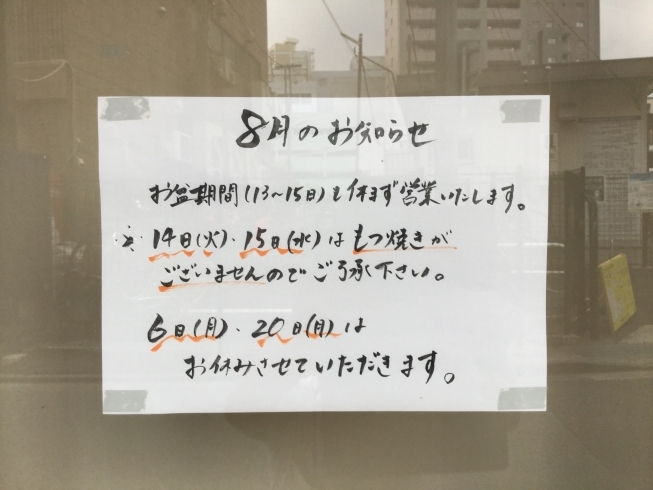 8月のお知らせ
お盆期間(13〜15日)も休まず営業いたします。
※14日(火)・15日(水)はもつ焼きが
ございませんのでご了承下さい。
6日(月)・20日(月)は
お休みさせていただきます。